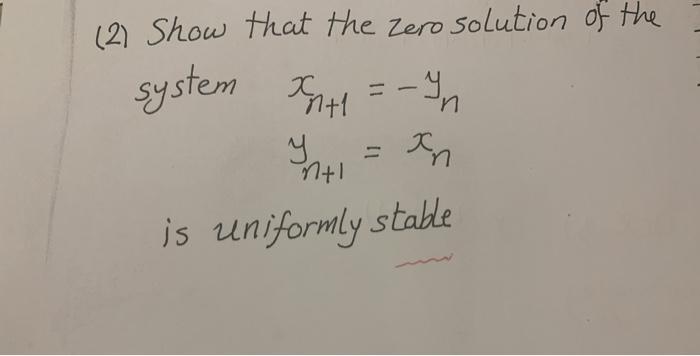 (2) Show that the zero solution of the
system x_{n+1} = -y_n
y_{n+1} = x_n
is uniformly stable